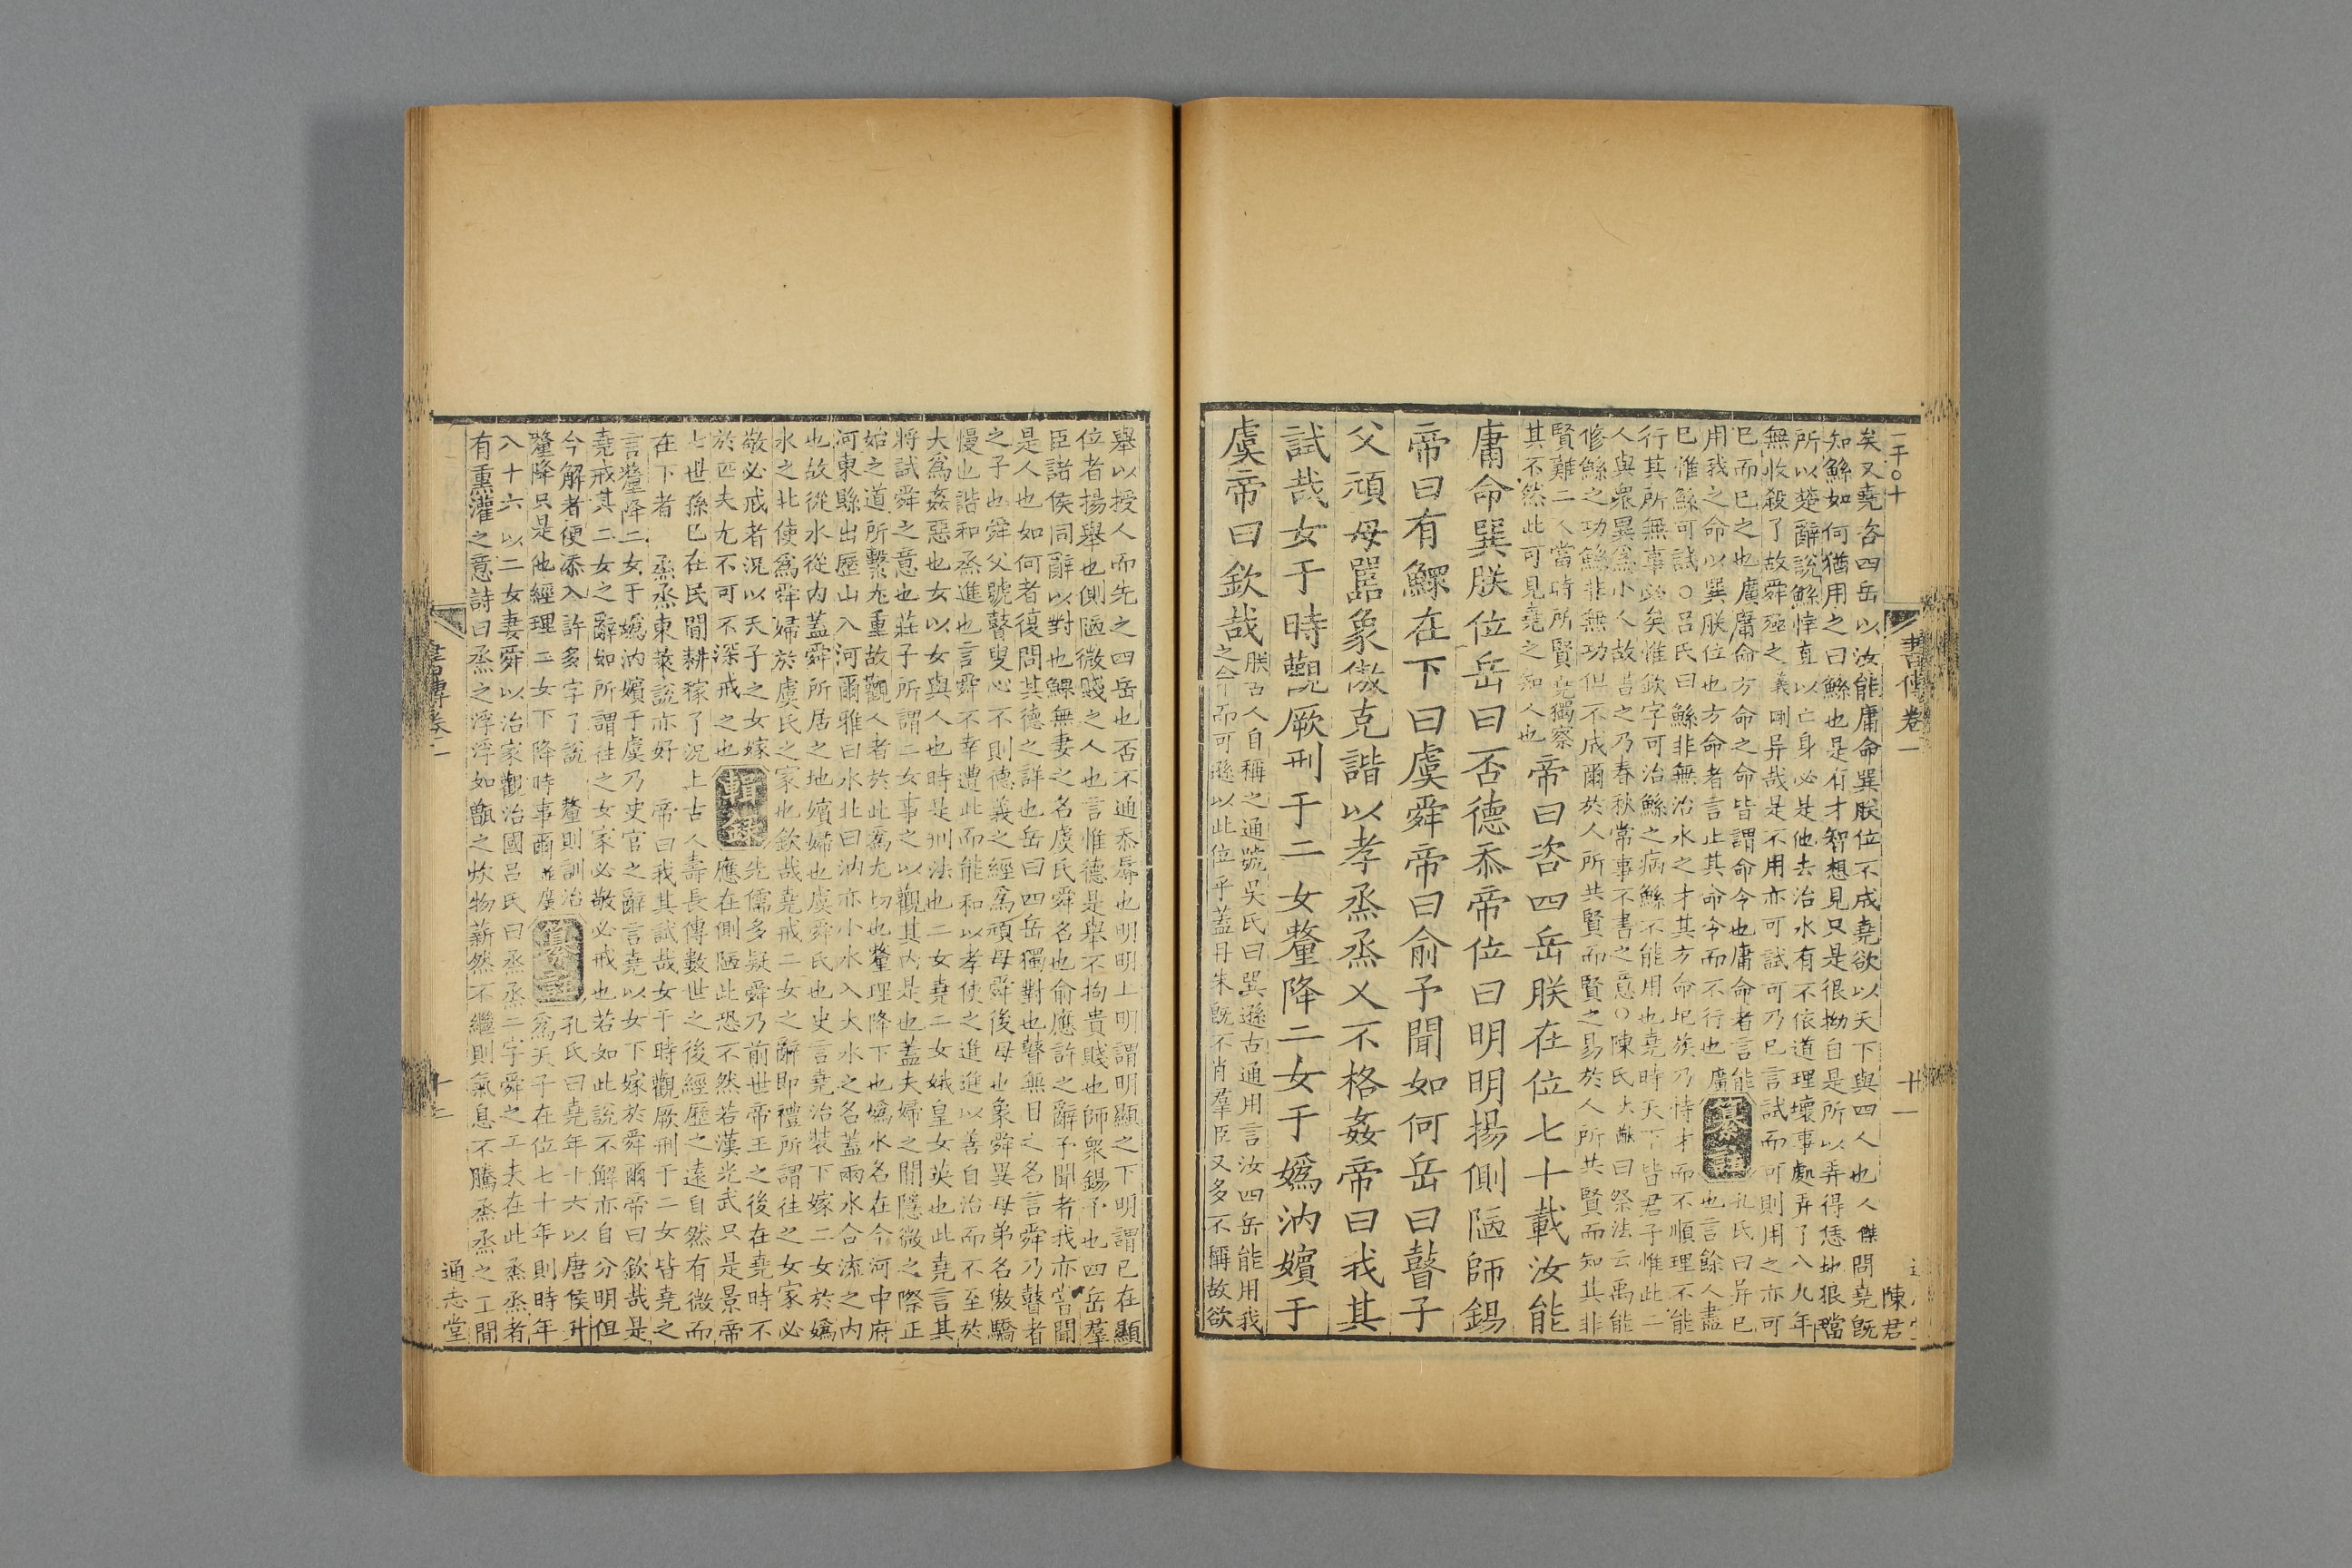 一千〇十
書傳卷一
十一
陳君
矣又堯咨四岳以汝能庸命巽朕位不成堯欲以天下與四人也人傑問堯旣
知鯀如何猶用之曰鯀也是有才智想見只是很拗自是所以弄得恁地狼當
所以楚辭說鯀悻直以亡身必是他去治水有不依道理壞事處弄了八九年
無收殺了故舜殛之義剛异哉是不用亦可試可乃已言試而可則用之亦可
已而已之也廣庸命方命之命皆謂命令也庸命者言能
用我之命以巽朕位也方命者言止其命令而不行也廣
纂註
孔氏曰异已
也言餘人盡
已惟鯀可試〇呂氏曰鯀非無治水之才其方命圯族乃恃才而不順理不能
行其所無事故矣惟欽字可治鯀之病鯀不能用也堯時天下皆君子惟此二
人與衆異爲小人故書之乃春秋常事不書之意〇陳氏大猷曰祭法云禹能
修鯀之功鯀非無功但不成爾於人所共賢而賢之易於人所共賢而知其非
賢難二人當時所賢堯獨察
其不然此可見堯之知人也
帝曰咨四岳朕在位七十載汝能
庸命巽朕位岳曰否德忝帝位曰明明揚側陋師錫
帝曰有鰥在下曰虞舜帝曰俞予聞如何岳曰瞽子
父頑母嚚象傲克諧以孝烝烝乂不格姦帝曰我其
試哉女于時觀厥刑于二女釐降二女于嬀汭嬪于
虞帝曰欽哉
朕古人自稱之通號吳氏曰巽遜古通用言汝四岳能用我
之命而可遜以此位乎蓋丹朱旣不肖羣臣又多不稱故欲
舉以授人而先之四岳也否不通忝辱也明明上明謂明顯之下明謂已在顯
位者揚舉也側陋微賤之人也言惟德是舉不拘貴賤也師衆錫予也四岳羣
臣諸侯同辭以對也鰥無妻之名虞氏舜名也俞應許之辭予聞者我亦嘗聞
是人也如何者復問其德之詳也岳曰四岳獨對也瞽無目之名言舜乃瞽者
之子也舜父號瞽叟心不則德義之經爲頑母舜後母也象舜異母弟名傲驕
慢也諧和烝進也言舜不幸遭此而能和以孝使之進進以善自治而不至於
大爲姦惡也女以女與人也時是刑法也二女堯二女娥皇女英也此堯言其
將試舜之意也莊子所謂二女事之以觀其內是也蓋夫婦之間隱微之際正
始之道所繫尤重故觀人者於此爲尤切也釐理降下也嬀水名在今河中府
河東縣出歷山入河爾雅曰水北曰汭亦小水入大水之名蓋兩水合流之內
也故從水從內蓋舜所居之地嬪婦也虞舜氏也史言堯治裝下嫁二女於嬀
水之北使爲舜婦於虞氏之家也欽哉堯戒二女之辭即禮所謂往之女家必
敬必戒者況以天子之女嫁
於匹夫尤不可不深戒之也
輯錄
先儒多疑舜乃前世帝王之後在堯時不
應在側陋此恐不然若漢光武只是景帝
七世孫已在民間耕稼了況上古人壽長傳數世之後經歷之遠自然有微而
在下者 烝烝東萊說亦好 帝曰我其試哉女于時觀厥刑于二女皆堯之
言釐降二女于嬀汭嬪于虞乃史官之辭言堯以女下嫁於舜爾帝曰欽哉是
堯戒其二女之辭如所謂往之女家必敬必戒也若如此說不解亦自分明但
今解者便添入許多字了說 釐則訓治
釐降只是他經理二女下降時事爾並廣
纂註
孔氏曰堯年十六以唐侯升
爲天子在位七十年則時年
八十六以二女妻舜以治家觀治國呂氏曰烝烝二字舜之工夫在此烝烝者
有熏灌之意詩曰烝之浮浮如甑之炊物薪然不繼則氣息不騰烝烝之工間
書傳卷一
十一
通志堂